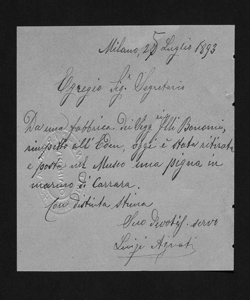 Milano, 25 Luglio 1893
Egregio Sig. Segretario
Da una fabbrica di Vigg. F.lli Bonomi,
rimpetto all' Eden, oggi è stata ritirata
e posta nel Museo una pigna in
marmo di Carrara.
Con distinta stima
Suo Devotis. servo
Luigi Agrati